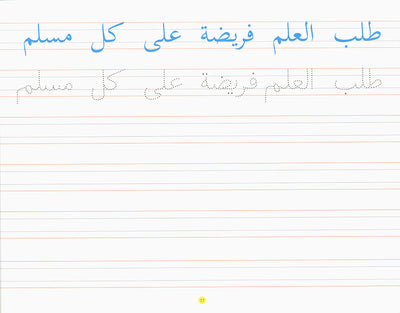 طلب العلم فريضة على كل مسلم
طلب العلم فريضة على كل مسلم